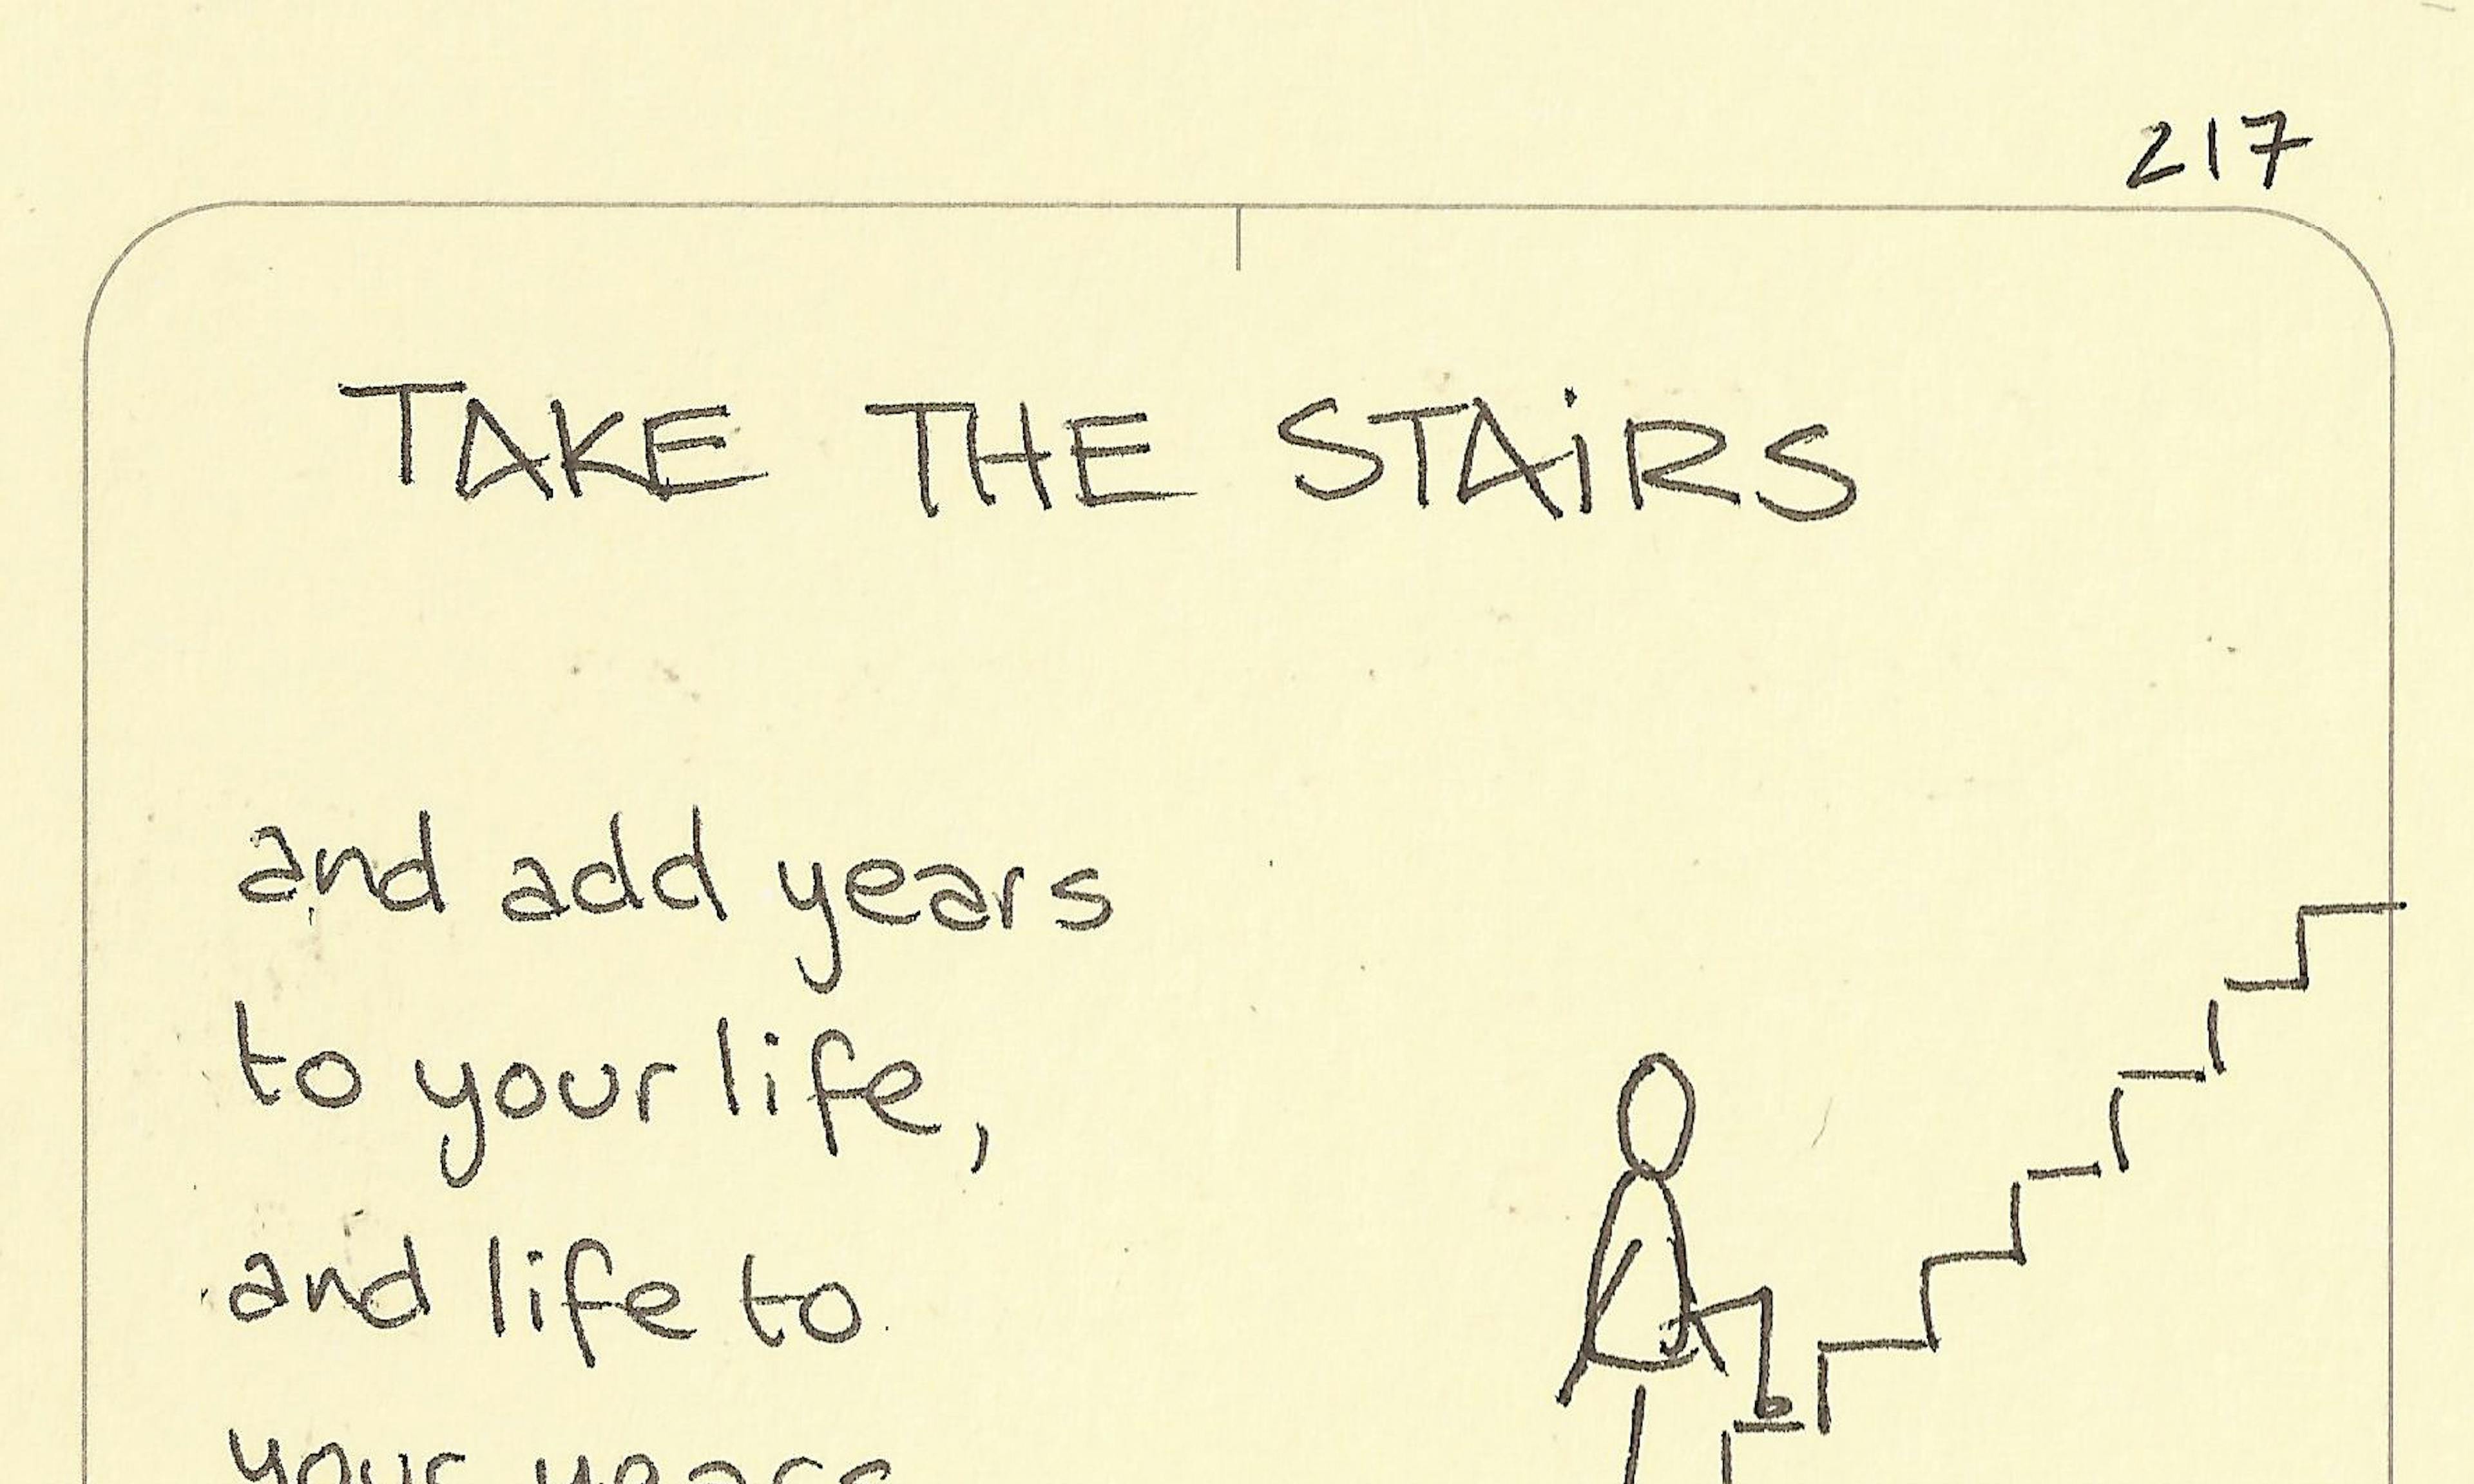 217
TAKE THE STAiRS
and add years
to your life,
and life to
your years